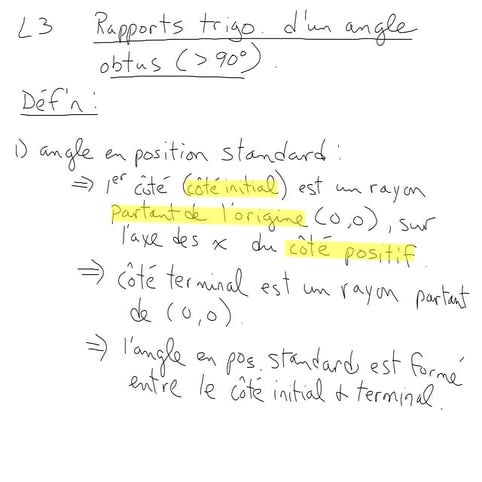 L3 Rapports trigo. d'un angle
obtus (>90°).
Déf'n:
1) angle en position standard:
⇒ 1er côté (côté initial) est un rayon
partant de l'origine (0,0), sur
l'axe des x du côté positif.
⇒ côté terminal est un rayon partant
de (0,0).
⇒ l'angle en pos. standard est formé
entre le côté initial & terminal.